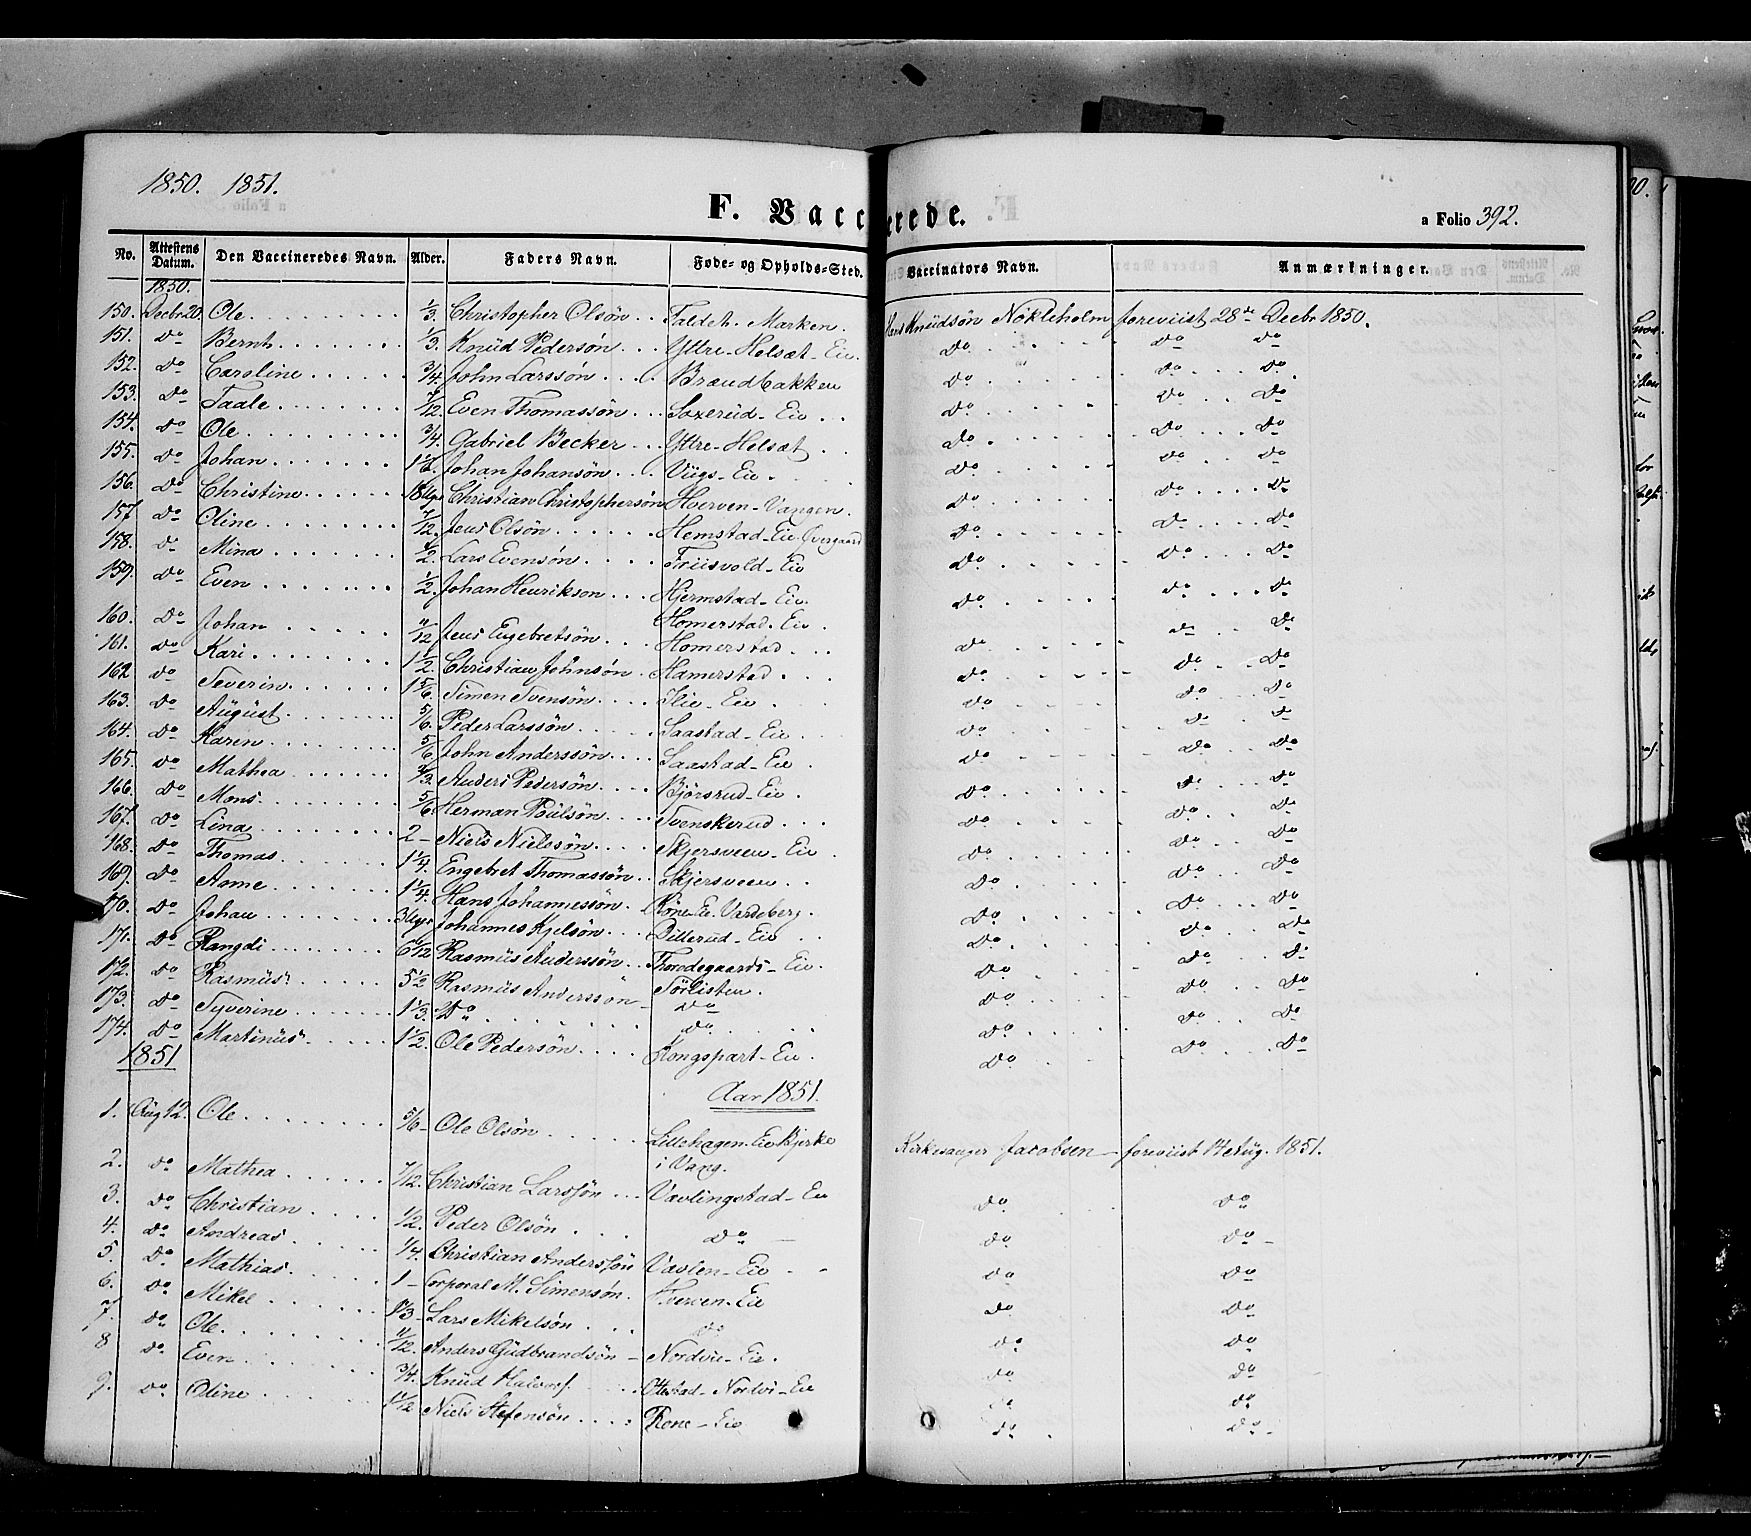 1850. 1851.
F. Vaccinerede.
a Folio 392.
No. Attestens Datum. Den Vaccineredes Navn. Alder. Faders Navn. Føde- og Opholds-Sted. Vaccinators Navn. Anmærkninger.
1850.
150. Decbr 20. Ole 1/3. Christopher Olsøn Taldet. Marken. Hans Knudsøn Nökleholm foreviist 28de Decbr 1850.
151. do Bernh. 1/3. Knud Pedersøn Yttre-Helset-Eie do do do
152. do Caroline 3/4. John Larssøn Brændbakken do do do
153. do Taale 7/12. Even Thomassøn Saxerud-Eie do do do
154. do Ole 3/4. Gabriel Becker Yttre-Helset do do do
155. do Johan Johan Johansøn Viigs-Eie do do do
156. do Christine 18 Uger Christian Christophersøn Hverven-Vangen. do do do
157. do Oline 7/12. Jens Olsøn Hemstad-Eie Overgaard do do do
158. do Mina 1/2. Lars Evensøn Friisvold-Eie do do do
159. do Even 1/2. Johan Henrikson Hjermstad-Eie. do do do
160. do Johan 11/12 Jens Engebretsøn Homerstad-Eie do do do
161. do Kari 1 1/2. Christian Johnsøn Homerstad do do do
162 do Severin 1 5/6. Simen Svensøn Hamerstad do do do
163. do August 5/6. Peder Larssøn Ilie-Eie do do do
164. do Karen 5/6. John Anderssøn Saastad-Eie do do do
165. do Mathea 2/3. Anders Pedersøn Saastad-Eie do do do
166. do Mons. 5/6. Herman Poulsøn Bjørsrud-Eie do do do
167. do Lina 2- Niels Nielssøn Svenskerud do do do
168. do Thomas 1 1/4. Engebret Thomassøn Skjersveen-Eie do do do
169. do Anne 1 1/4. Hans Johannessøn Skjersveen do do do
170. do Johan 3 Uger Johannes Kjelsøn Röne-Eie Vardeberg. do do do
171. do Rangdi 6 Rasmus Anderssøn Dillerud-Eie do do do
172. do Rasmus 5 1/2 Rasmus Anderssøn Thorodegaards-Eie. do do do
173. do Syverine 1 1/3. do Törlisten. do do do
174. do Martinus 1 1/2. Ole Pedersøn Kongspart-Eie do do do
1851
Aar 1851.
1. Aug 12. Ole 5/6- Ole Olsøn Lillehagen. Eie Bjerke i Vang. Kirkesanger Jacobsen foreviist 14 Aug. 1851.
2. do Mathea 7/12. Christian Larssøn Vavlingstad-Eie do do
3. do Christian 1/2. Peder Olsøn do do do
4. do Andreas 1/4. Christian Anderssøn Vavlen-Eie do do
5. do Mathias 1- Corporal M. Simensøn Hverven-Eie do do
6. do Mikel Lars Mikelsøn do do do
7. do Ole 11/12. Anders Gudbrandsøn Nordvie-Eie. do do
8 do Even 3/4. Knud Halvors. Ottestad-Nordvi-Eie do do
9. do Oline 1 1/2 Niels Stefensøn Rone-Eie do do